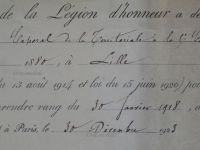 de la Légion d'honneur a dé
Caporal de la Territoriale à la 1
1880, à Lille
du 13 août 1914 et loi du 15 juin 1920) pou
prendre rang du 30 Janvier 1918,
à Paris, le 30 Décembre 1923